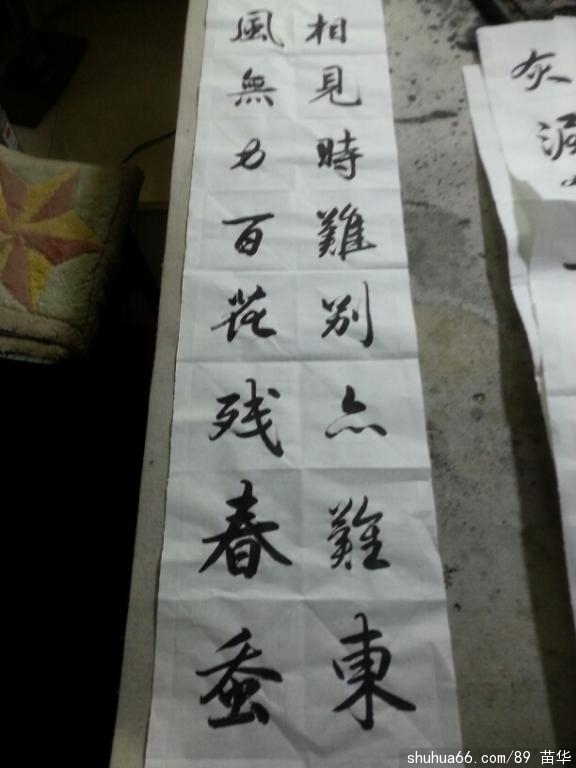 相見時難别亦難東
風無力百花残春蚕
灰淚
shuhua66.com/89 苗华